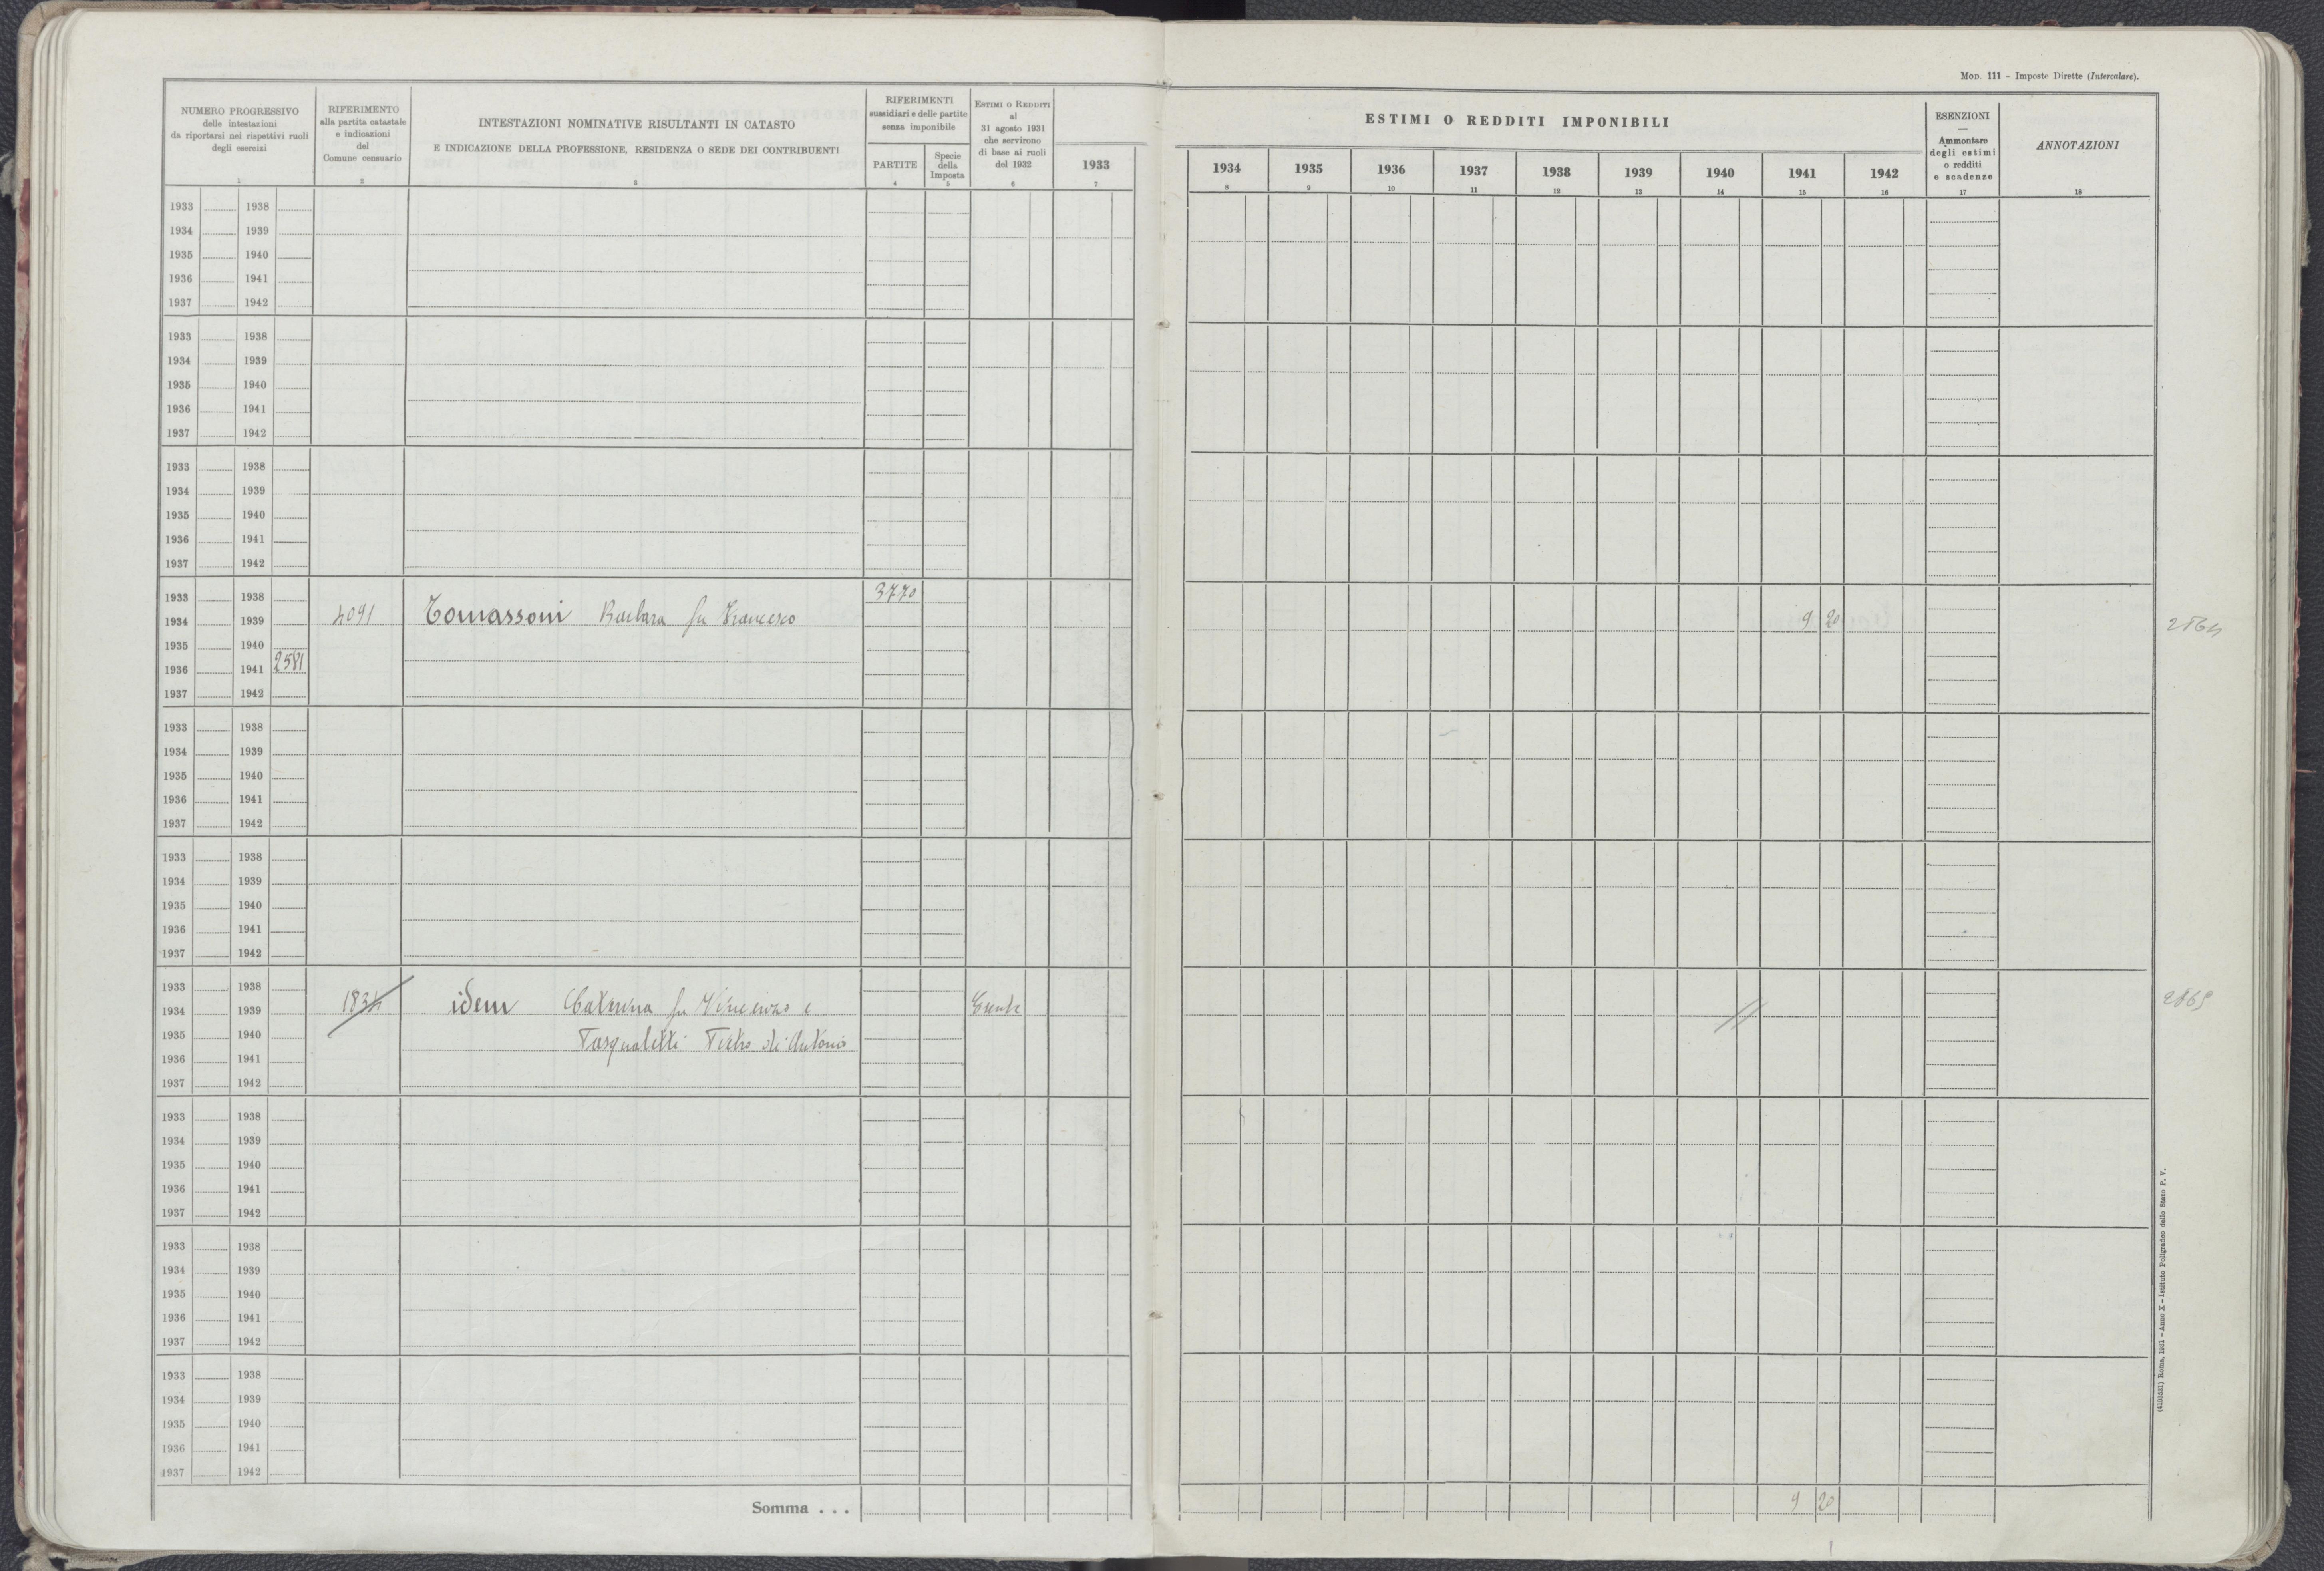 MOD. 111 - Imposte Dirette (Intercalare).
NUMERO PROGRESSIVO
delle intestazioni
da riportarsi nei rispettivi ruoli
degli esercizi
1
RIFERIMENTO
alla partita catastale
e indicazioni
del
Comune censuario
2
INTESTAZIONI NOMINATIVE RISULTANTI IN CATASTO
E INDICAZIONE DELLA PROFESSIONE, RESIDENZA O SEDE DEI CONTRIBUENTI
3
RIFERIMENTI
sussidiari e delle partite
senza imponibile
PARTITE
4
Specie
della
Imposta
5
ESTIMI O REDDITI
al
31 agosto 1931
che servirono
di base ai ruoli
del 1932
6
ESTIMI O REDDITI IMPONIBILI
1933 1934 1935 1936 1937 1938 1939 1940 1941 1942
7 8 9 10 11 12 13 14 15 16
ESENZIONI
—
Ammontare
degli estimi
o redditi
e scadenze
17
ANNOTAZIONI
18
1933 1938
1934 1939
1935 1940
1936 1941
1937 1942
1933 1938
1934 1939
1935 1940
1936 1941
1937 1942
1933 1938
1934 1939
1935 1940
1936 1941
1937 1942
1933 1938 3770
1934 1939 4091 Tomassoni Barbara fu Francesco 9 20
1935 1940
1936 1941 2581
1937 1942
1933 1938
1934 1939
1935 1940
1936 1941
1937 1942
1933 1938
1934 1939
1935 1940
1936 1941
1937 1942
1933 1938
1934 1939 1834 idem Caterina fu Vincenzo e Esente //
1935 1940 Pasqualetti Pietro di Antonio
1936 1941
1937 1942
1933 1938
1934 1939
1935 1940
1936 1941
1937 1942
1933 1938
1934 1939
1935 1940
1936 1941
1937 1942
1933 1938
1934 1939
1935 1940
1936 1941
1937 1942
Somma . . . 9 20